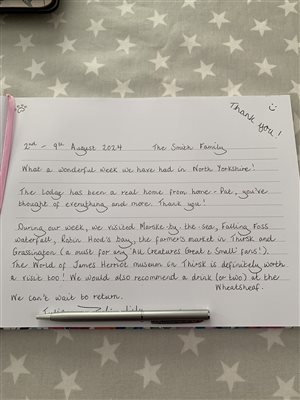 Thank you!
2nd - 9th August 2024 The Smith Family
What a wonderful week we have had in North Yorkshire!
The Lodge has been a real home from home - Pat, you've
thought of everything and more. Thank you!
During our week, we visited Marske-by-the-sea, Falling Foss
waterfall, Robin Hood's bay, the farmer's market in Thirsk and
Grassington (a must for any 'All Creatures Great & Small' fans!).
The World of James Herriot museum in Thirsk is definitely worth
a visit too! We would also recommend a drink (or two) at the
Wheatsheaf.
We can't wait to return.